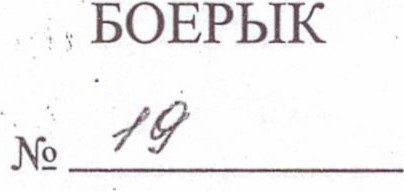 БОЕРЫК
№ 19